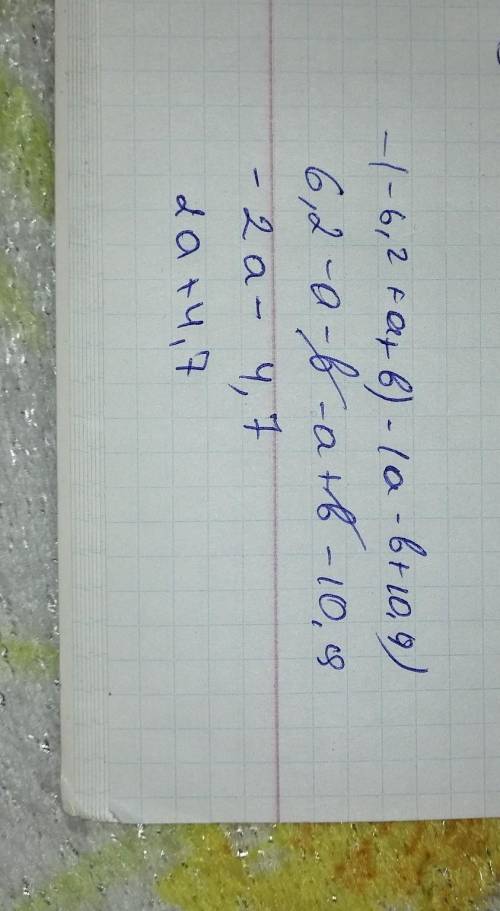 -(-6,2+a+b)-(a-b+10,9)
6,2-a-b-a+b-10,9
-2a-4,7
2a+4,7